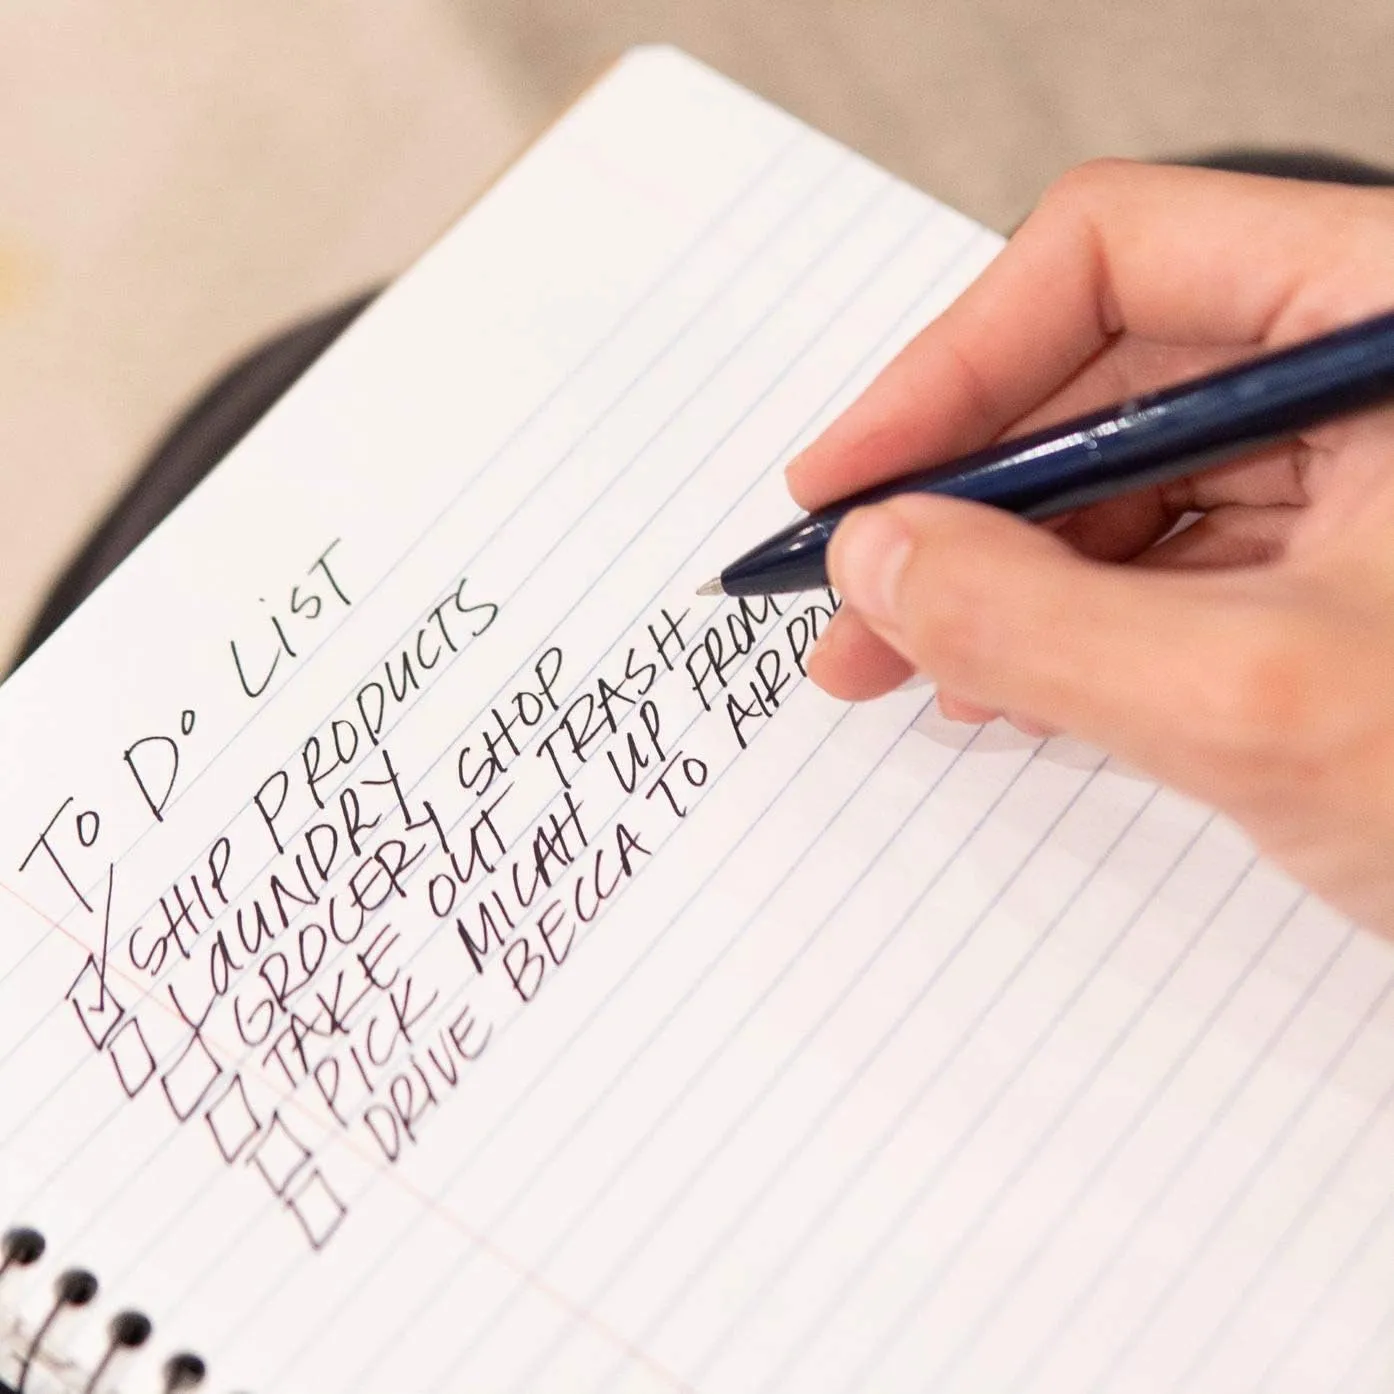 To Do List
SHIP PRODUCTS
LAUNDRY
GROCERY SHOP
TAKE OUT TRASH
PICK MICAH UP FROM
DRIVE BECCA TO